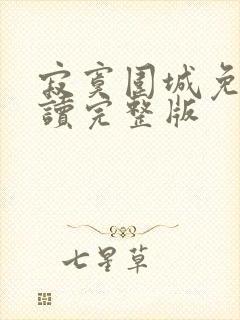 寂寞围城免
读完整版
七星草